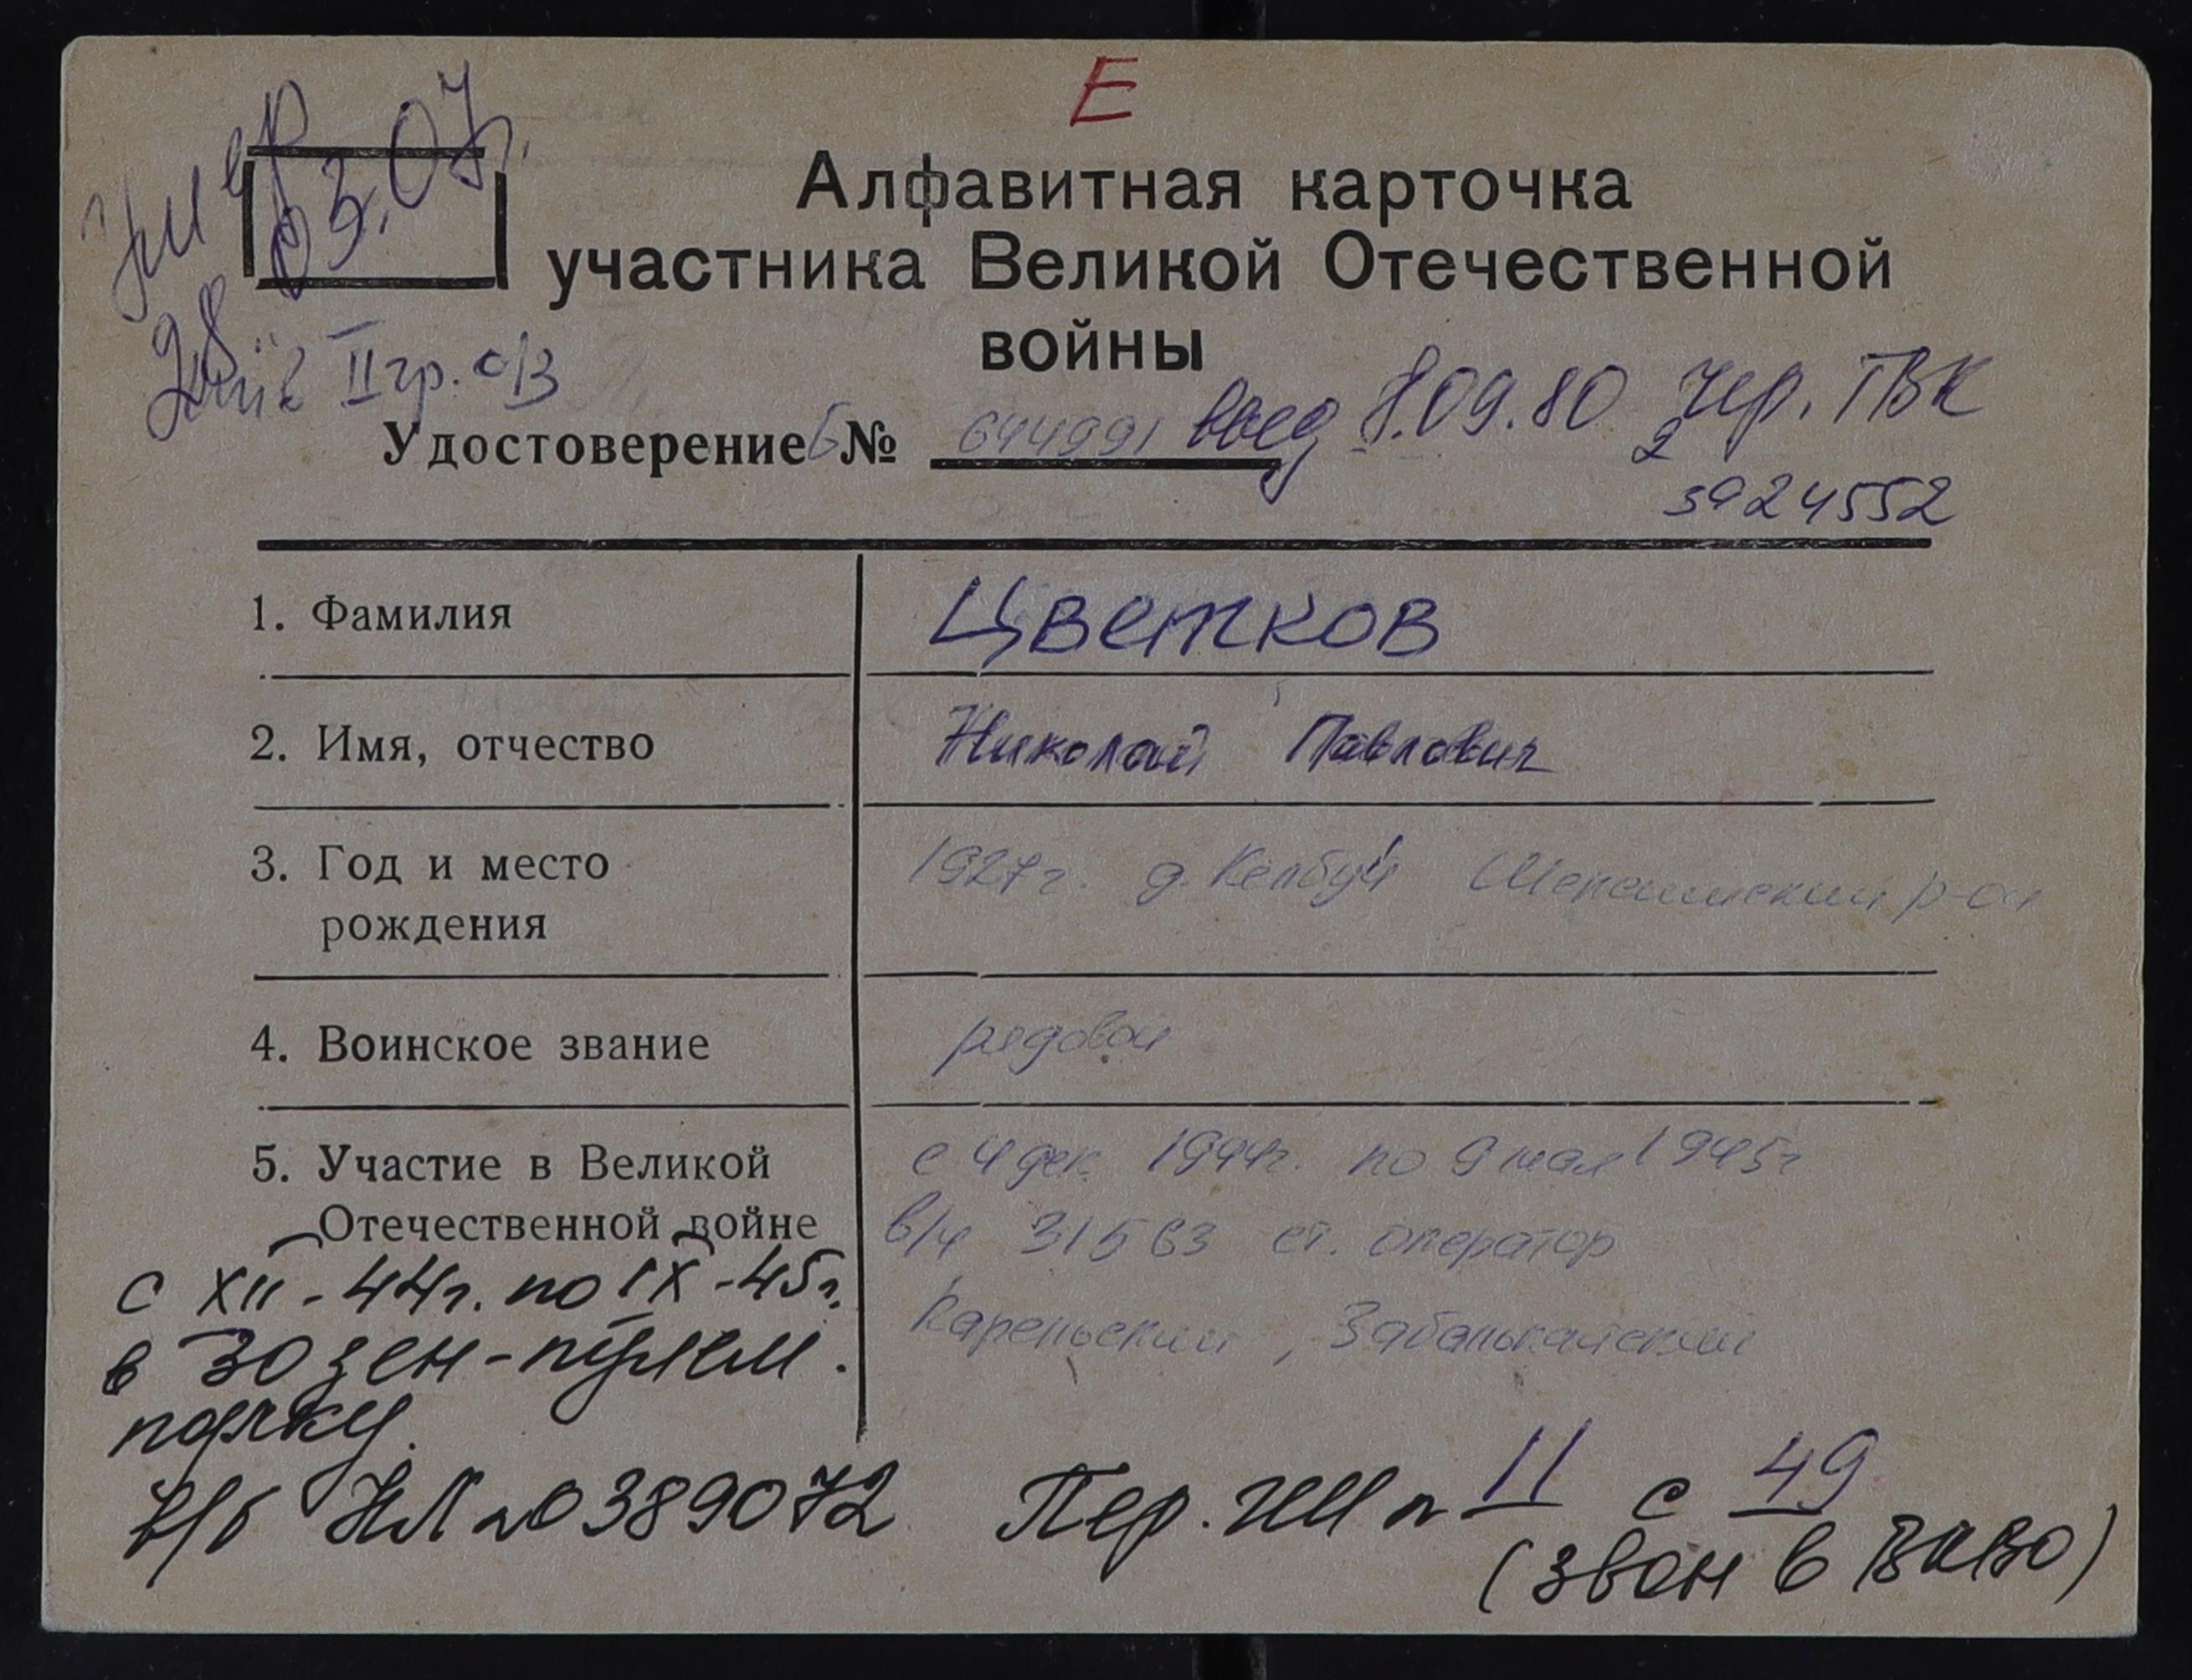 Е
Алфавитная карточка
участника Великой Отечественной
войны
умер
28.03.07г.
II гр. о/з
Удостоверение Б № 644991 выд 8.09.80 Чер. ГВК
3924552
1. Фамилия Цветков
2. Имя, отчество Николай Павлович
3. Год и место 1927г. д. Келбуй р-он
рождения
4. Воинское звание рядовой
5. Участие в Великой с 4 дек. 1944г. по 9 мая 1945г
Отечественной войне в/ч 31563 ст. оператор
Карельский, Забайкальский
с XII-44г. по IX-45г.
в 30 зен-пулем.
полку.
В/б НЛ № 0389072 Пер. п 11 с 49
(звон в ВКВО)